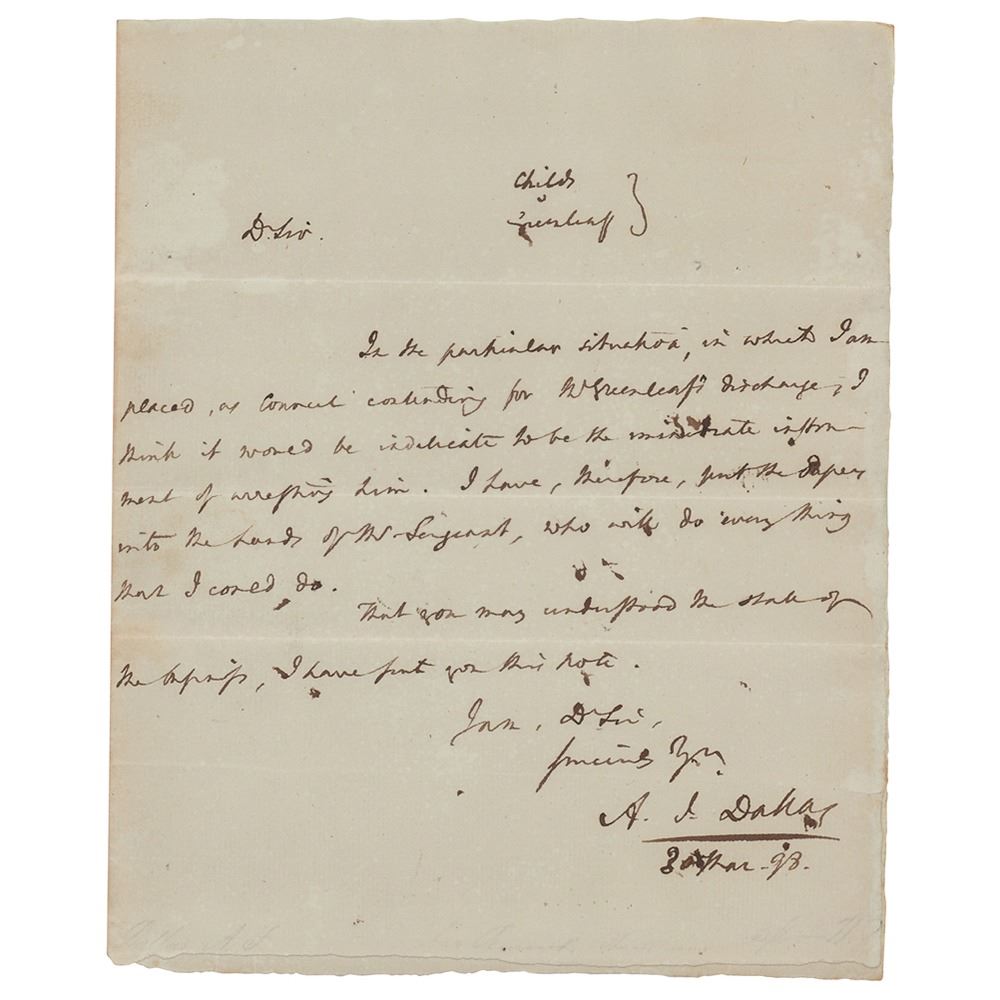 Childs
v
Greenleaf }
Dr Sir.
In the particular situation, in which I am
placed, as Counsel contending for Mr Greenleaf's discharge, I
think it would be indelicate to be the immediate instru-
ment of arresting him. I have, therefore, put the papers
into the hands of Mr Sergeant, who will do every thing
that I could do.
That you may understand the state of
the business, I have sent you this note.
I am, Dr Sir,
Sincerely Yrs,
A. J. Dallas
30 Mar. 98.